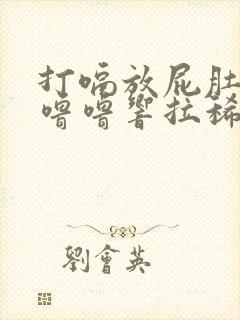 打嗝放屁肚
噜噜響拉稀
劉會英